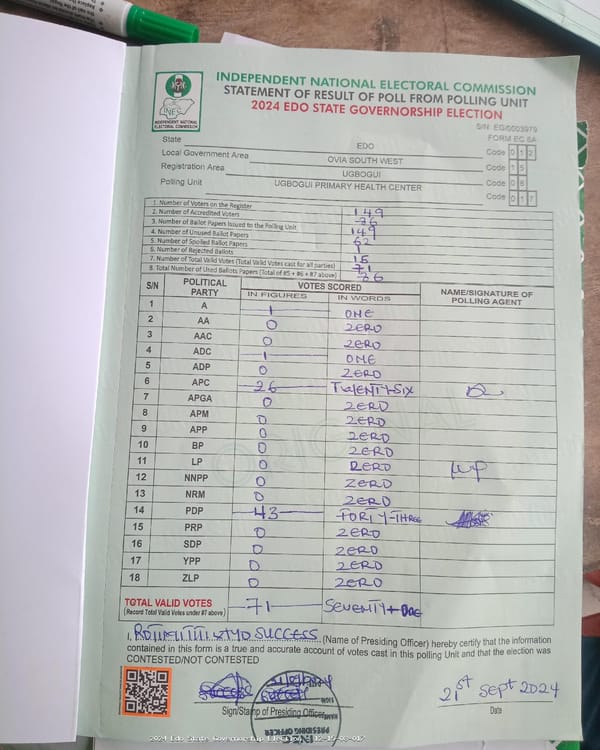 INDEPENDENT NATIONAL ELECTORAL COMMISSION
STATEMENT OF RESULT OF POLL FROM POLLING UNIT
2024 EDO STATE GOVERNORSHIP ELECTION
INDEPENDENT NATIONAL ELECTORAL COMMISSION
FORM EC 8A
State EDO Code 0 1 2
Local Government Area OVIA SOUTH WEST Code 1 5
Registration Area UGBOGUI Code 0 8
Polling Unit UGBOGUI PRIMARY HEALTH CENTER Code 0 1 7
1. Number of Voters on the Register 149
2. Number of Accredited Voters 76
3. Number of Ballot Papers Issued to the Polling Unit 149
4. Number of Unused Ballot Papers 62
5. Number of Spoiled Ballot Papers 1
6. Number of Rejected Ballots 15
7. Number of Total Valid Votes (Total Valid Votes cast for all parties) 71
8. Total Number of Used Ballots Papers (Total of #5 + #6 + #7 above) 76
S/N POLITICAL PARTY VOTES SCORED NAME/SIGNATURE OF POLLING AGENT
IN FIGURES IN WORDS
1 A 1 ONE
2 AA 0 ZERO
3 AAC 0 ZERO
4 ADC 1 ONE
5 ADP 0 ZERO
6 APC 26 TWENTY-SIX
7 APGA 0 ZERO
8 APM 0 ZERO
9 APP 0 ZERO
10 BP 0 ZERO
11 LP 0 ZERO
12 NNPP 0 ZERO
13 NRM 0 ZERO
14 PDP 43 FORTY-THREE
15 PRP 0 ZERO
16 SDP 0 ZERO
17 YPP 0 ZERO
18 ZLP 0 ZERO
TOTAL VALID VOTES 71 SEVENTY+ONE
(Record Total Valid Votes under #7 above)
I, SUCCESS (Name of Presiding Officer) hereby certify that the information
contained in this form is a true and accurate account of votes cast in this polling Unit and that the election was
CONTESTED/NOT CONTESTED
21st Sept 2024
Sign/Stamp of Presiding Officer Date
PRESIDING OFFICER